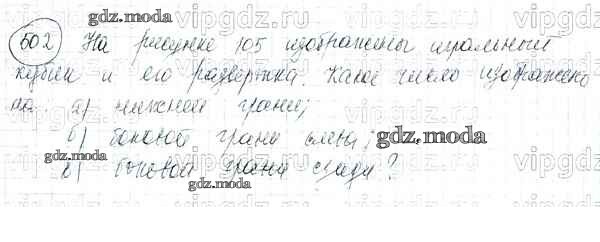 502 На рисунке 105 изображены игральный
кубик и его развертка. Какое число изображено
на: а) нижней грани;
б) боковой грани слева;
в) боковой грани сзади?
gdz.moda
gdz.moda
gdz.moda
gdz.moda
vipgdz